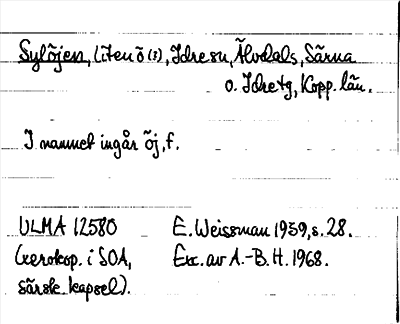 Sylöjen, liten ö (s), Idre sn, Älvdals, Särna
o. Idre tg, Kopp. län.
I namnet ingår öj, f.
ULMA 12580 E. Weissman 1939, s. 28.
(xerokop. i SOA, Exc. av A.-B. H. 1968.
särsk. kapsel).